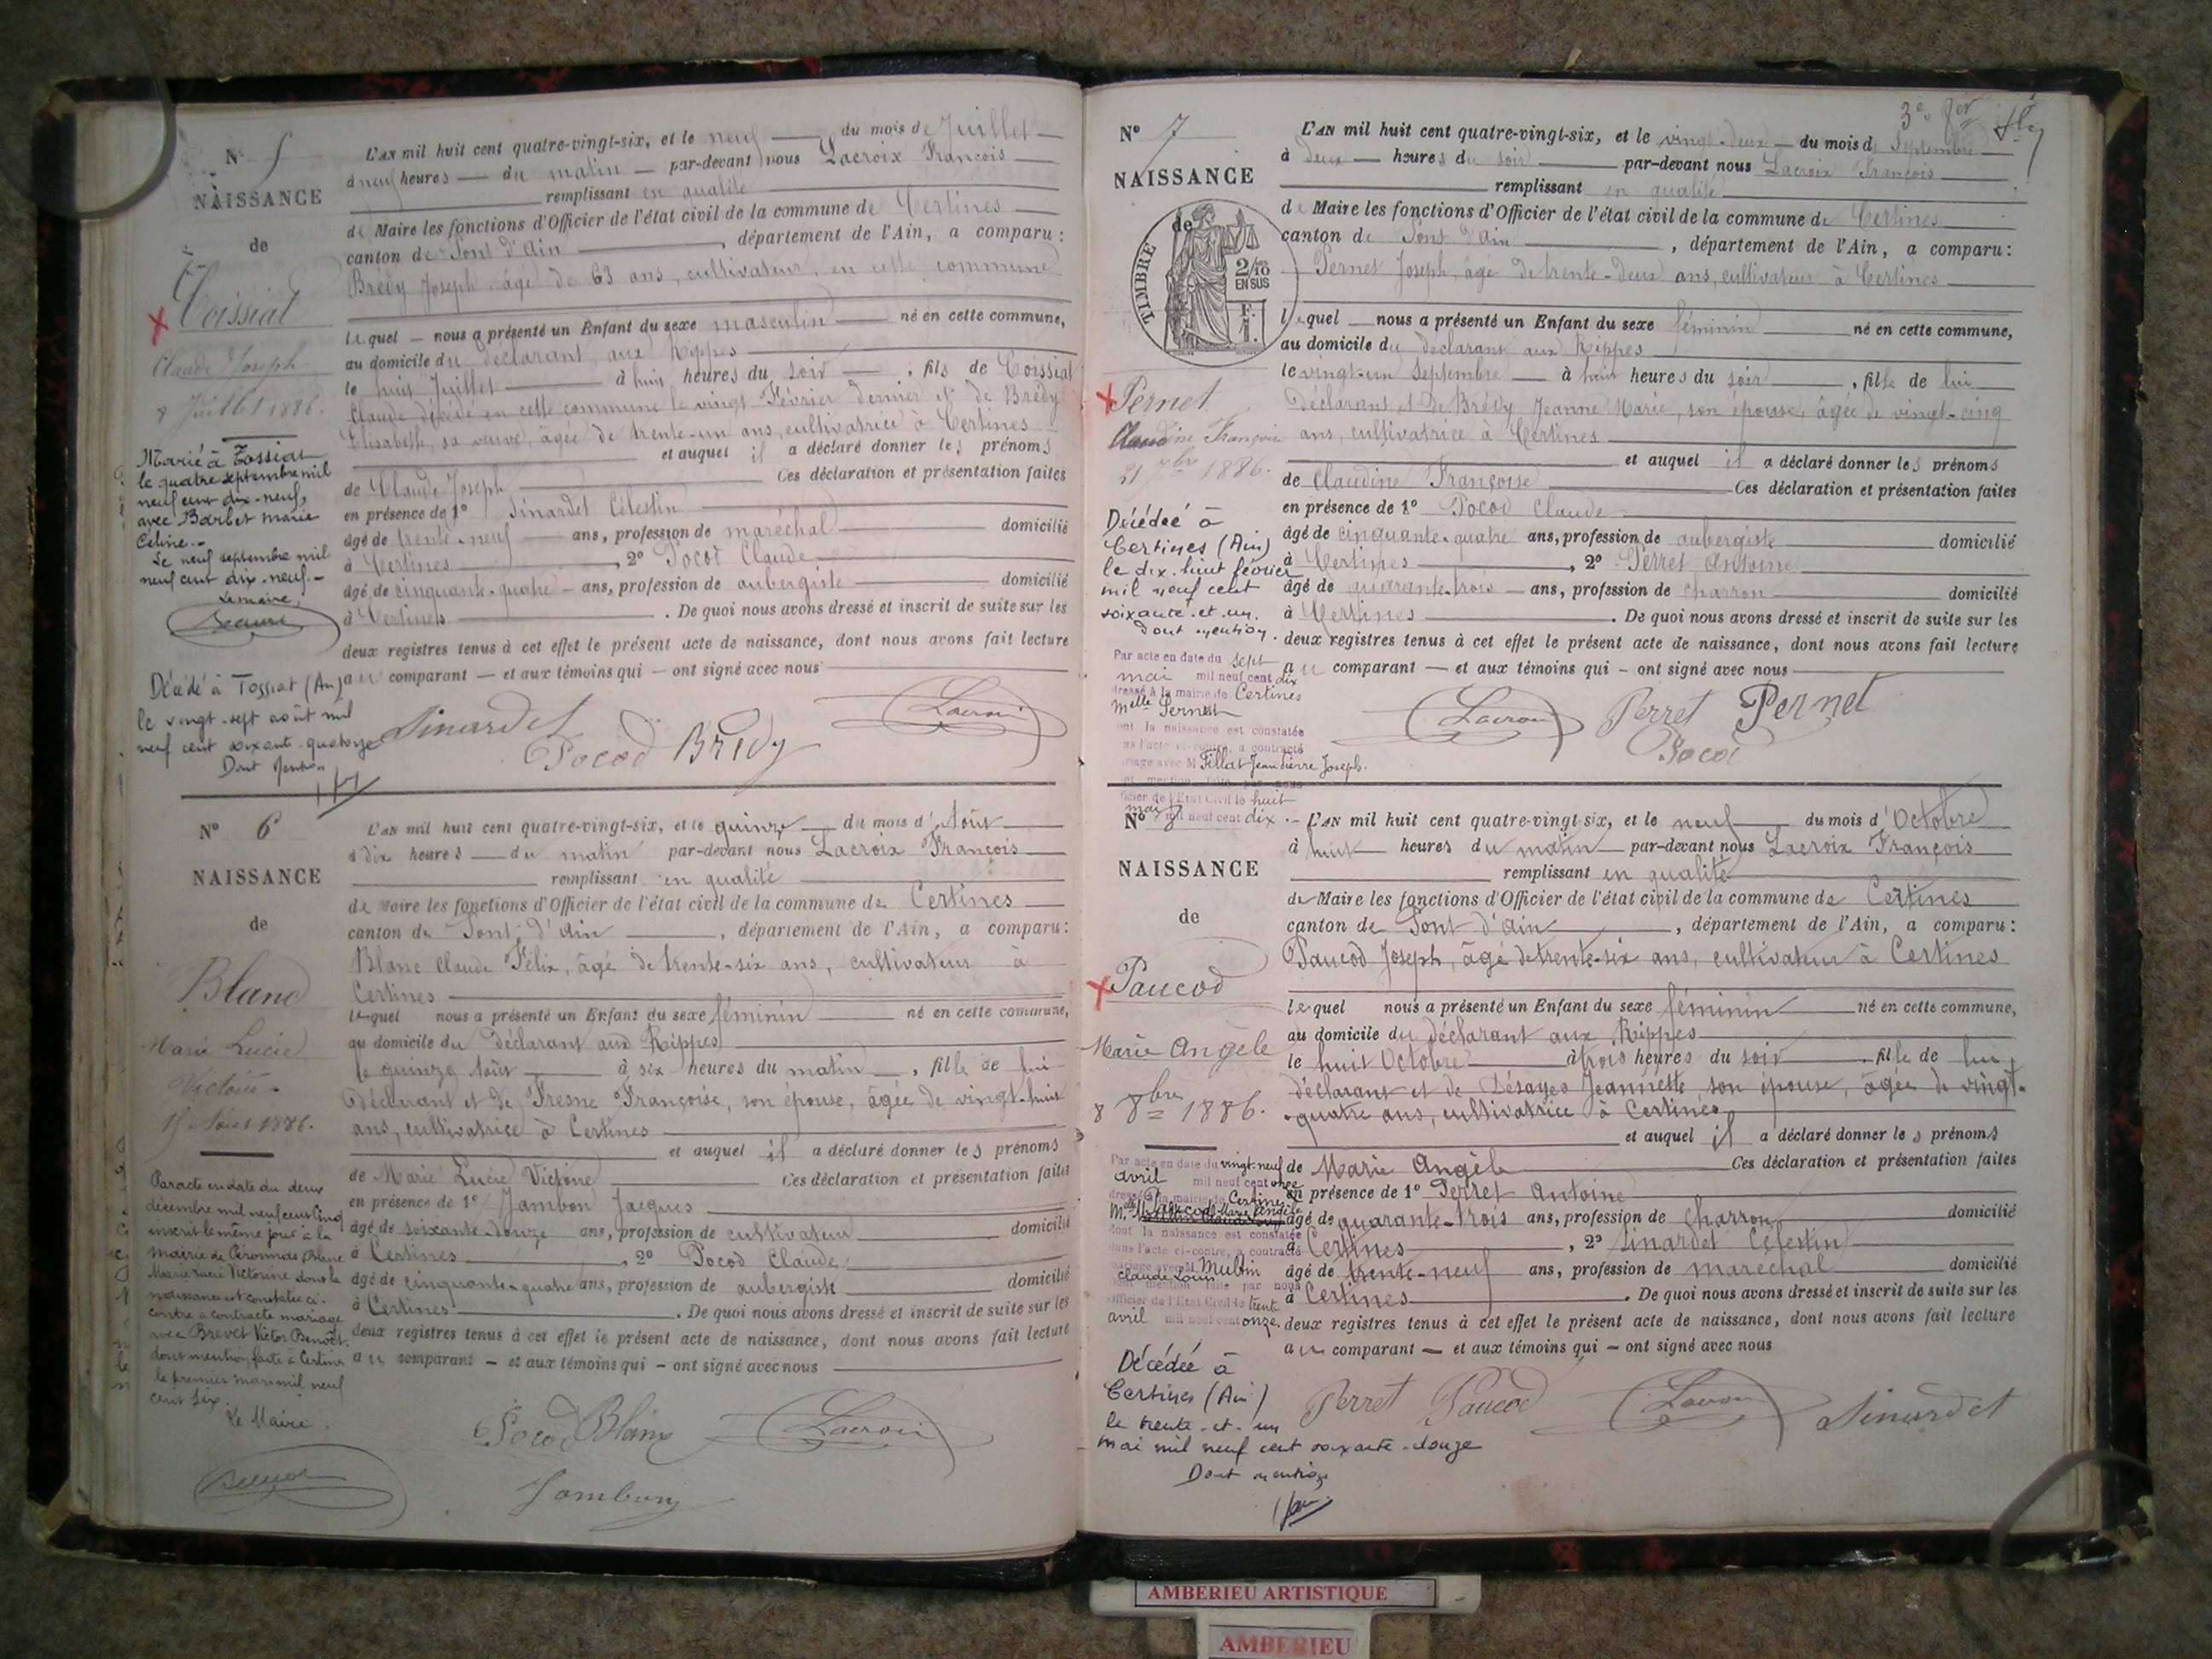 N° 5
NAISSANCE
de
Coissiat
Claude Joseph
8 Juillet 1886.
Marié à Tossiat
le quatre septembre mil
neuf cent dix-neuf,
avec Barbet Marie
Celine.-
Le neuf septembre mil
neuf cent dix-neuf.-
Le maire,
Décédé à Tossiat (Ain)
le vingt-sept août mil
neuf cent soixante-quatorze
Dont Mention
L'AN mil huit cent quatre-vingt-six, et le neuf du mois de Juillet
à neuf heures du matin par-devant nous Lacroix François
remplissant en qualité
de Maire les fonctions d'Officier de l'état civil de la commune de Certines
canton de Pont d'Ain, département de l'Ain, a comparu:
Brédy Joseph, âgé de 63 ans, cultivateur, en cette commune
lequel nous a présenté un Enfant du sexe masculin né en cette commune,
au domicile du déclarant aux Rippes
le huit Juillet à huit heures du soir, fils de Coissiat
Claude décédé en cette commune le vingt Février dernier et de Brédy
Elisabeth, sa veuve, âgée de trente-un ans, cultivatrice à Certines
et auquel il a déclaré donner les prénoms
de Claude Joseph Ces déclaration et présentation faites
en présence de 1° Sinardet Célestin
âgé de trente-neuf ans, profession de maréchal domicilié
à Certines, 2° Pocod Claude
âgé de cinquante-quatre ans, profession de aubergiste domicilié
à Certines. De quoi nous avons dressé et inscrit de suite sur les
deux registres tenus à cet effet le présent acte de naissance, dont nous avons fait lecture
au comparant et aux témoins qui ont signé avec nous
Sinardet
Pocod Brédy
Lacroix
N° 6
NAISSANCE
de
Blanc
Marie Lucie
Victorine
15 Août 1886.
Par acte en date du deux
décembre mil neuf cent cinq
inscrit le même jour à la
mairie de Péronnas, Blanc
Marie Lucie Victorine dont la
naissance est constatée ci-
contre a contracté mariage
avec Brevet Victor Benoît
dont mention faite à Certines
le premier mars mil neuf
cent six.
Le Maire.
L'AN mil huit cent quatre-vingt-six, et le quinze du mois d'Août
à dix heures du matin par-devant nous Lacroix François
remplissant en qualité
de Maire les fonctions d'Officier de l'état civil de la commune de Certines
canton de Pont d'Ain, département de l'Ain, a comparu:
Blanc Claude Félix, âgé de trente-six ans, cultivateur à
Certines
lequel nous a présenté un Enfant du sexe féminin né en cette commune,
au domicile du déclarant aux Rippes
le quinze Août à six heures du matin, fille de lui
déclarant et de Fresne Françoise, son épouse, âgée de vingt-huit
ans, cultivatrice à Certines
et auquel il a déclaré donner les prénoms
de Marie Lucie Victorine Ces déclaration et présentation faites
en présence de 1° Jambon Jacques
âgé de soixante-douze ans, profession de cultivateur domicilié
à Certines, 2° Pocod Claude
âgé de cinquante-quatre ans, profession de aubergiste domicilié
à Certines. De quoi nous avons dressé et inscrit de suite sur les
deux registres tenus à cet effet le présent acte de naissance, dont nous avons fait lecture
au comparant et aux témoins qui ont signé avec nous
Pocod Blanc Lacroix
Jambon
N° 7
NAISSANCE
de
TIMBRE
2/10
EN SUS
F.
1.
Pernet
Claudine Françoise
21 7bre 1886.
Décédée à
Certines (Ain)
le dix-huit février
mil neuf cent
soixante-et-un.
Dont mention.
Par acte en date du sept
mai mil neuf cent dix
dressé à la mairie de Certines
Melle Pernet
dont la naissance est constatée
dans l'acte ci-contre, a contracté
mariage avec M Fillat Jean Pierre Joseph.
dont mention faite par nous
Officier de l'Etat Civil le huit
mai mil neuf cent dix.
3e
L'AN mil huit cent quatre-vingt-six, et le vingt-deux du mois de Septembre
à deux heures du soir par-devant nous Lacroix François
remplissant en qualité
de Maire les fonctions d'Officier de l'état civil de la commune de Certines
canton de Pont d'Ain, département de l'Ain, a comparu:
Pernet Joseph, âgé de trente-deux ans, cultivateur à Certines
lequel nous a présenté un Enfant du sexe féminin né en cette commune,
au domicile du déclarant aux Rippes
le vingt-un Septembre à huit heures du soir, fille de lui
déclarant et de Brédy Jeanne Marie, son épouse, âgée de vingt-cinq
ans, cultivatrice à Certines
et auquel il a déclaré donner les prénoms
de Claudine Françoise Ces déclaration et présentation faites
en présence de 1° Pocod Claude
âgé de cinquante-quatre ans, profession de aubergiste domicilié
à Certines, 2° Perret Antoine
âgé de quarante-trois ans, profession de charron domicilié
à Certines. De quoi nous avons dressé et inscrit de suite sur les
deux registres tenus à cet effet le présent acte de naissance, dont nous avons fait lecture
au comparant et aux témoins qui ont signé avec nous
Lacroix Perret Pernet
Pocod
N° 8
NAISSANCE
de
Paucod
Marie Angèle
8 8bre 1886.
Par acte en date du vingt-neuf
avril mil neuf cent onze
dressé à la mairie de Certines
Melle Paucod Marie Angèle
dont la naissance est constatée
dans l'acte ci-contre, a contracté
mariage avec M. Multin
Claude Louis
dont mention faite par nous
Officier de l'Etat Civil le trente
avril mil neuf cent onze.
Décédée à
Certines (Ain)
le trente-et-un
mai mil neuf cent soixante-douze
Dont mention
L'AN mil huit cent quatre-vingt-six, et le neuf du mois d'Octobre
à huit heures du matin par-devant nous Lacroix François
remplissant en qualité
de Maire les fonctions d'Officier de l'état civil de la commune de Certines
canton de Pont d'Ain, département de l'Ain, a comparu:
Paucod Joseph, âgé de trente-six ans, cultivateur à Certines
lequel nous a présenté un Enfant du sexe féminin né en cette commune,
au domicile du déclarant aux Rippes
le huit Octobre à trois heures du soir, fille de lui
déclarant et de Désayes Jeannette, son épouse, âgée de vingt-
quatre ans, cultivatrice à Certines
et auquel il a déclaré donner les prénoms
de Marie Angèle Ces déclaration et présentation faites
en présence de 1° Perret Antoine
âgé de quarante-trois ans, profession de charron domicilié
à Certines, 2° Sinardet Célestin
âgé de trente-neuf ans, profession de maréchal domicilié
à Certines. De quoi nous avons dressé et inscrit de suite sur les
deux registres tenus à cet effet le présent acte de naissance, dont nous avons fait lecture
au comparant et aux témoins qui ont signé avec nous
Perret Paucod Lacroix Sinardet
AMBERIEU ARTISTIQUE
AMBERIEU